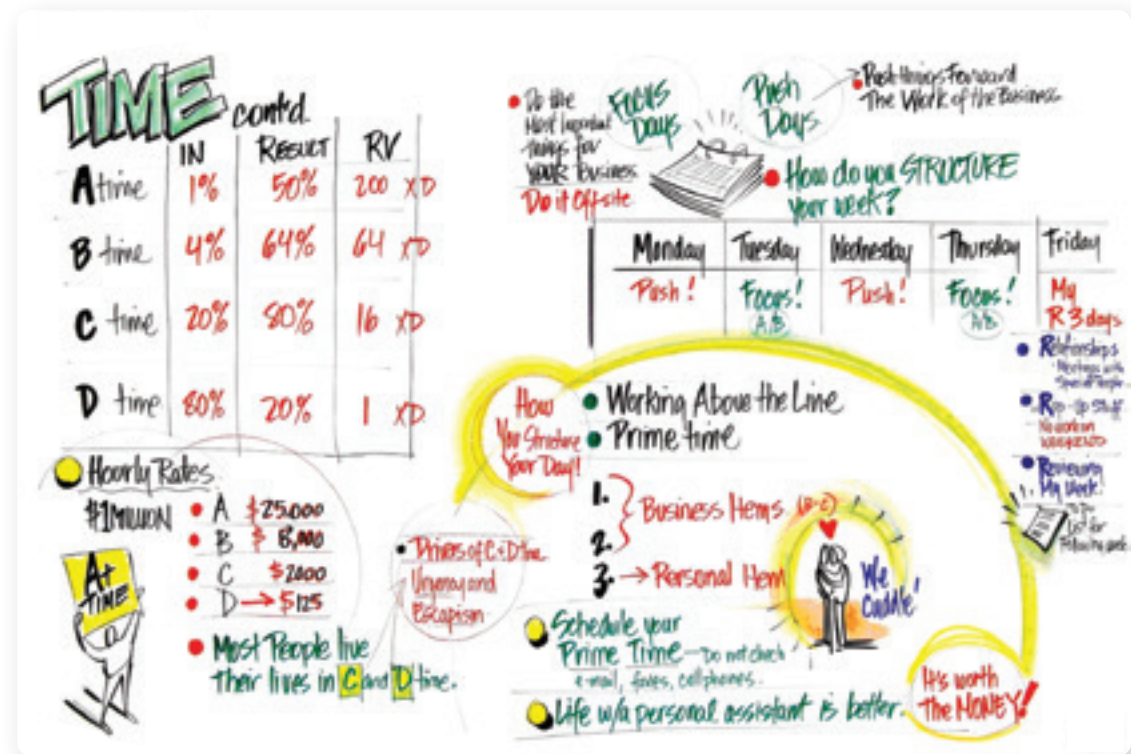 TIME cont'd.
IN RESULT RV
A time 1% 50% 200 XD
B time 4% 64% 64 XD
C time 20% 80% 16 XD
D time 80% 20% 1 XD
Hourly Rates
$1MILLION
A $25,000
B $ 8,000
C $2000
D → $125
A+
TIME
Most People live
their lives in C and D time.
Drivers of C+D time
Urgency and
Escapism
Do the
Most Important
things for
YOUR Business
Do it Offsite
FOCUS
DAYS
Push
DAYS
Push things Forward
The Work of the Business
How do you STRUCTURE
your week?
Monday Tuesday Wednesday Thursday Friday
Push! Focus! Push! Focus! My
A/B A/B R 3 days
Relationships
Meetings with
Special People
Stuff
No work on
weekends
Reviewing
My Week
To Do
List for
Following week
How
You Structure
Your Day!
Working Above the Line
Prime time
1.
2.
Business Items
3. → Personal Item
We
Cuddle
Schedule your
Prime Time — Do not check
e-mail, faxes, cellphones.
Life w/a personal assistant is better.
It's worth
The MONEY!